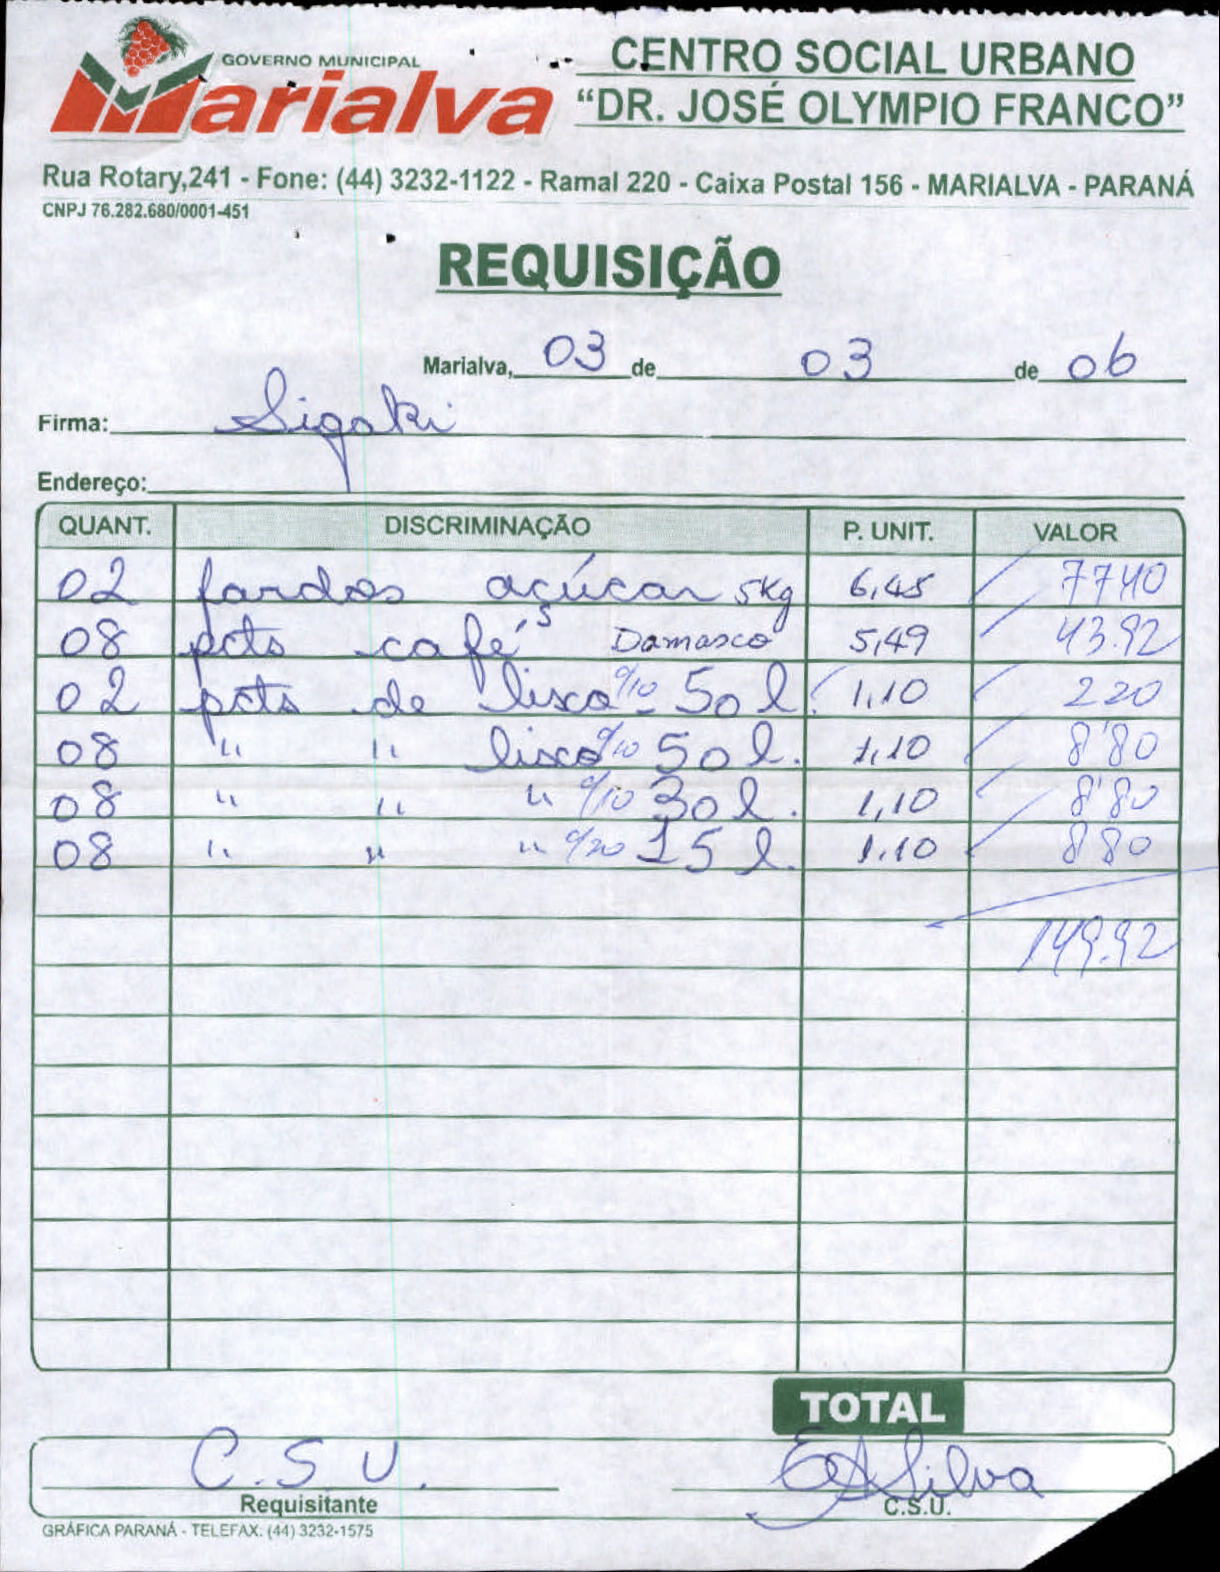 GOVERNO MUNICIPAL
Marialva
CENTRO SOCIAL URBANO
"DR. JOSÉ OLYMPIO FRANCO"
Rua Rotary,241 - Fone: (44) 3232-1122 - Ramal 220 - Caixa Postal 156 - MARIALVA - PARANÁ
CNPJ 76.282.680/0001-451
REQUISIÇÃO
Marialva, 03 de 03 de 06
Firma: Sigaki
Endereço:
QUANT. DISCRIMINAÇÃO P. UNIT. VALOR
02 fardos açúcar 5kg 6,45 7740
08 pcts café's Damasco 5,49 43.92
02 pcts de lixo c/10 50 l. 1,10 220
08 " " lixo c/10 50 l. 1,10 8'80
08 " " " c/10 30 l. 1,10 8'80
08 " " " c/20 15 l. 1.10 880
149.92
TOTAL
C.S.U. Silva
Requisitante C.S.U.
GRÁFICA PARANÁ - TELEFAX: (44) 3232-1575